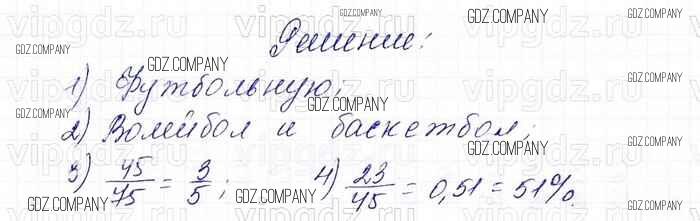 GDZ.COMPANY
Решение:
GDZ.COMPANY GDZ.COMPANY
1) Футбольную;
GDZ.COMPANY GDZ.COMPANY
2) Волейбол и баскетбол;
GDZ.COMPANY
3) 45/75 = 3/5; 4) 23/45 = 0,51 = 51%.
GDZ.COMPANY GDZ.COMPANY GDZ.COMPANY
vipgdz.ru vipgdz.ru vipgdz.ru